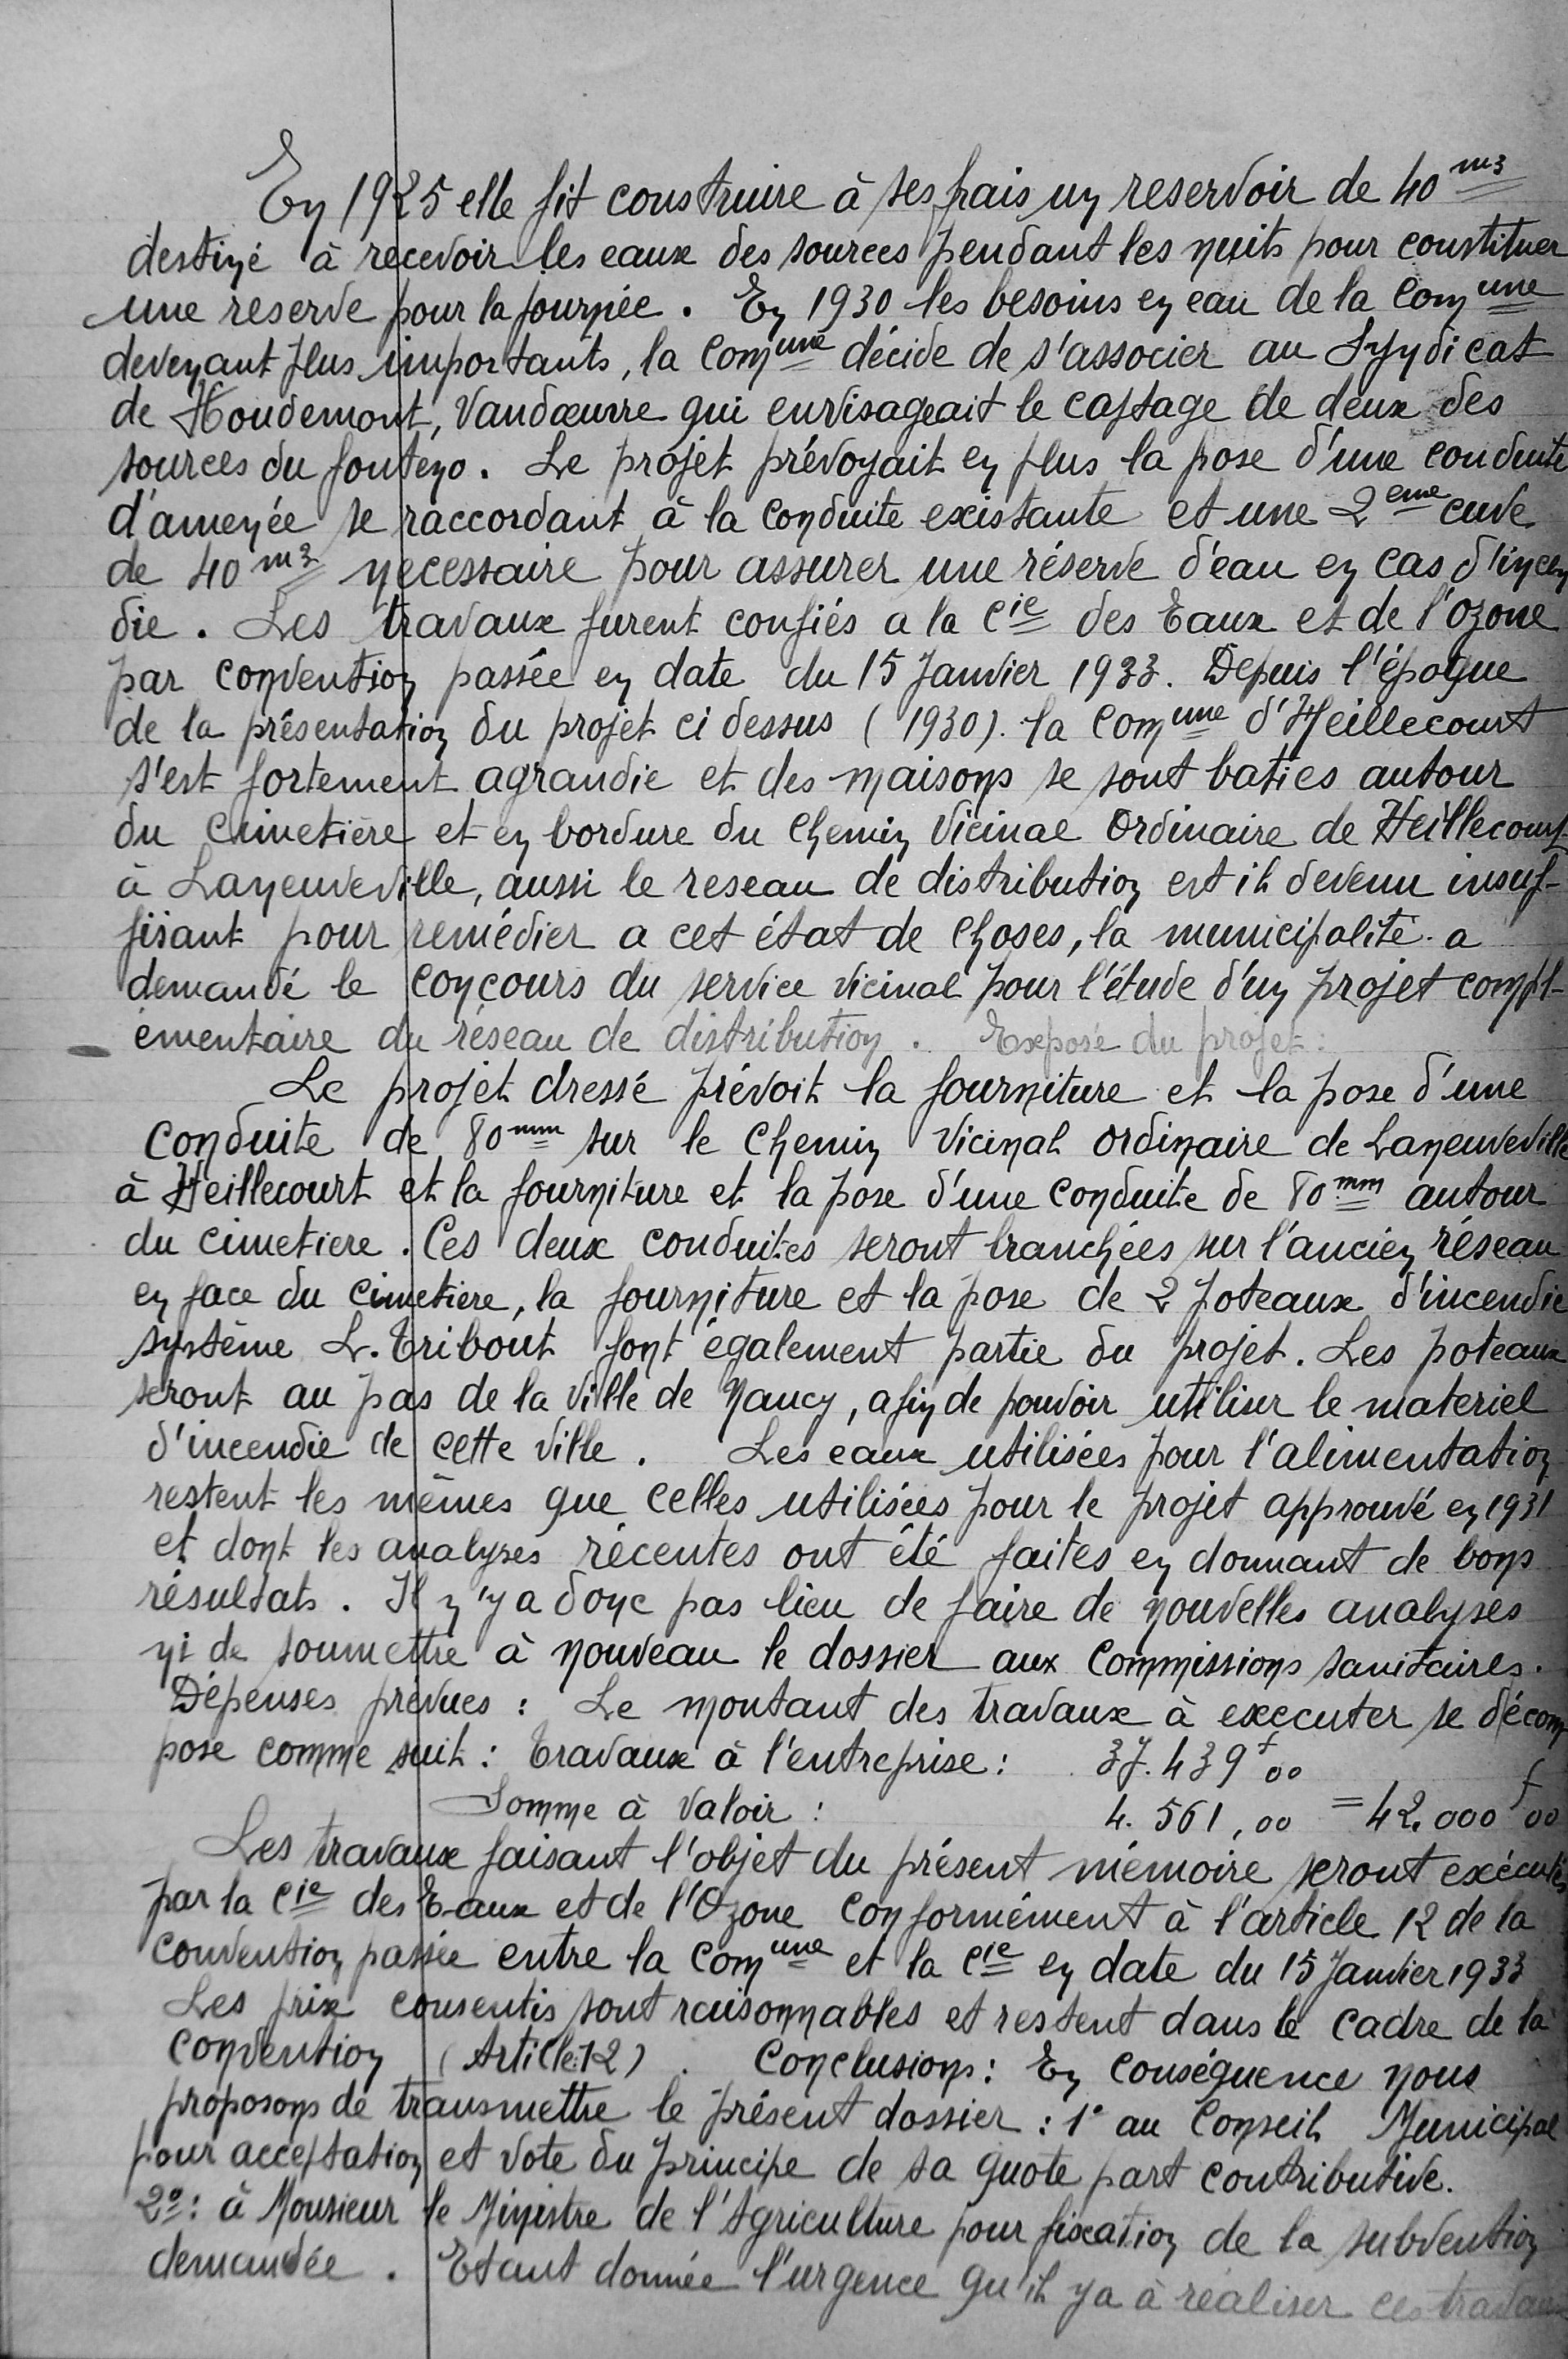 En 1925 elle fit construire à ses frais un reservoir de 40 m3
destiné à recevoir les eaux des sources pendant les nuits pour constituer
une reserve pour la journée. En 1930 les besoins en eau de la Commune
devenant plus importants, la Commune décide de s'associer au Syndicat
de Houdemont, Vandœuvre qui envisageait le captage de deux des
sources du fonteno. Le projet prévoyait en plus la pose d'une conduite
d'amenée se raccordant à la conduite existante et une 2eme cuve
de 40 m3 necessaire pour assurer une réserve d'eau en cas d'incen
die. Les travaux furent confiés a la Cie des Eaux et de l'Ozone
par convention passée en date du 15 Janvier 1933. Depuis l'époque
de la présentation du projet ci dessus (1930). la Commune d'Heillecourt
s'est fortement agrandie et des maisons se sont baties autour
du cimetière et en bordure du chemin Vicinal Ordinaire de Heillecourt
à Laneuveville, aussi le reseau de distribution est il devenu insuf-
fisant pour remédier a cet état de choses, la municipalité. a
demandé le concours du service vicinal pour l'étude d'un projet compl-
émentaire du réseau de distribution. Exposé du projet:
Le projet dressé prévoit la fourniture et la pose d'une
conduite de 80 mm sur le Chemin Vicinal ordinaire de Laneuveville
à Heillecourt et la fourniture et la pose d'une conduite de 80 mm autour
du cimetiere. Ces deux conduites seront branchées sur l'ancien réseau
en face du cimetière, la fourniture et la pose de 2 poteaux d'incendie
système L. Tribout font également partie du projet. Les poteaux
seront au pas de la Ville de Nancy, afin de pouvoir utiliser le materiel
d'incendie de cette ville. Les eaux utilisées pour l'alimentation
restent les mêmes que celles utilisées pour le projet approuvé en 1931
et dont les analyses récentes ont été faites en donnant de bons
résultats. Il n'y a donc pas lieu de faire de nouvelles analyses
ni de soumettre à nouveau le dossier aux Commissions sanitaires.
Dépenses prévues : Le montant des travaux à executer se décom
pose comme suit : Travaux à l'entreprise : 37.439f 00
Somme à valoir : 4. 561,00 = 42.000f 00
Les travaux faisant l'objet du présent mémoire seront exécutés
par la Cie des Eaux et de l'Ozone Conformément à l'article 12 de la
convention passée entre la Commune et la Cie en date du 15 Janvier 1933
Les prix consentis sont raisonnables et restent dans le cadre de la
convention (Article:12). Conclusions : En conséquence nous
proposons de transmettre le présent dossier : 1° au Conseil Municipal
pour acceptation et vote du principe de sa quote part contributive.
2°: à Monsieur le Ministre de l'Agriculture pour fixation de la subvention
demandée. Etant donnée l'urgence qu'il y a à réaliser ces travaux